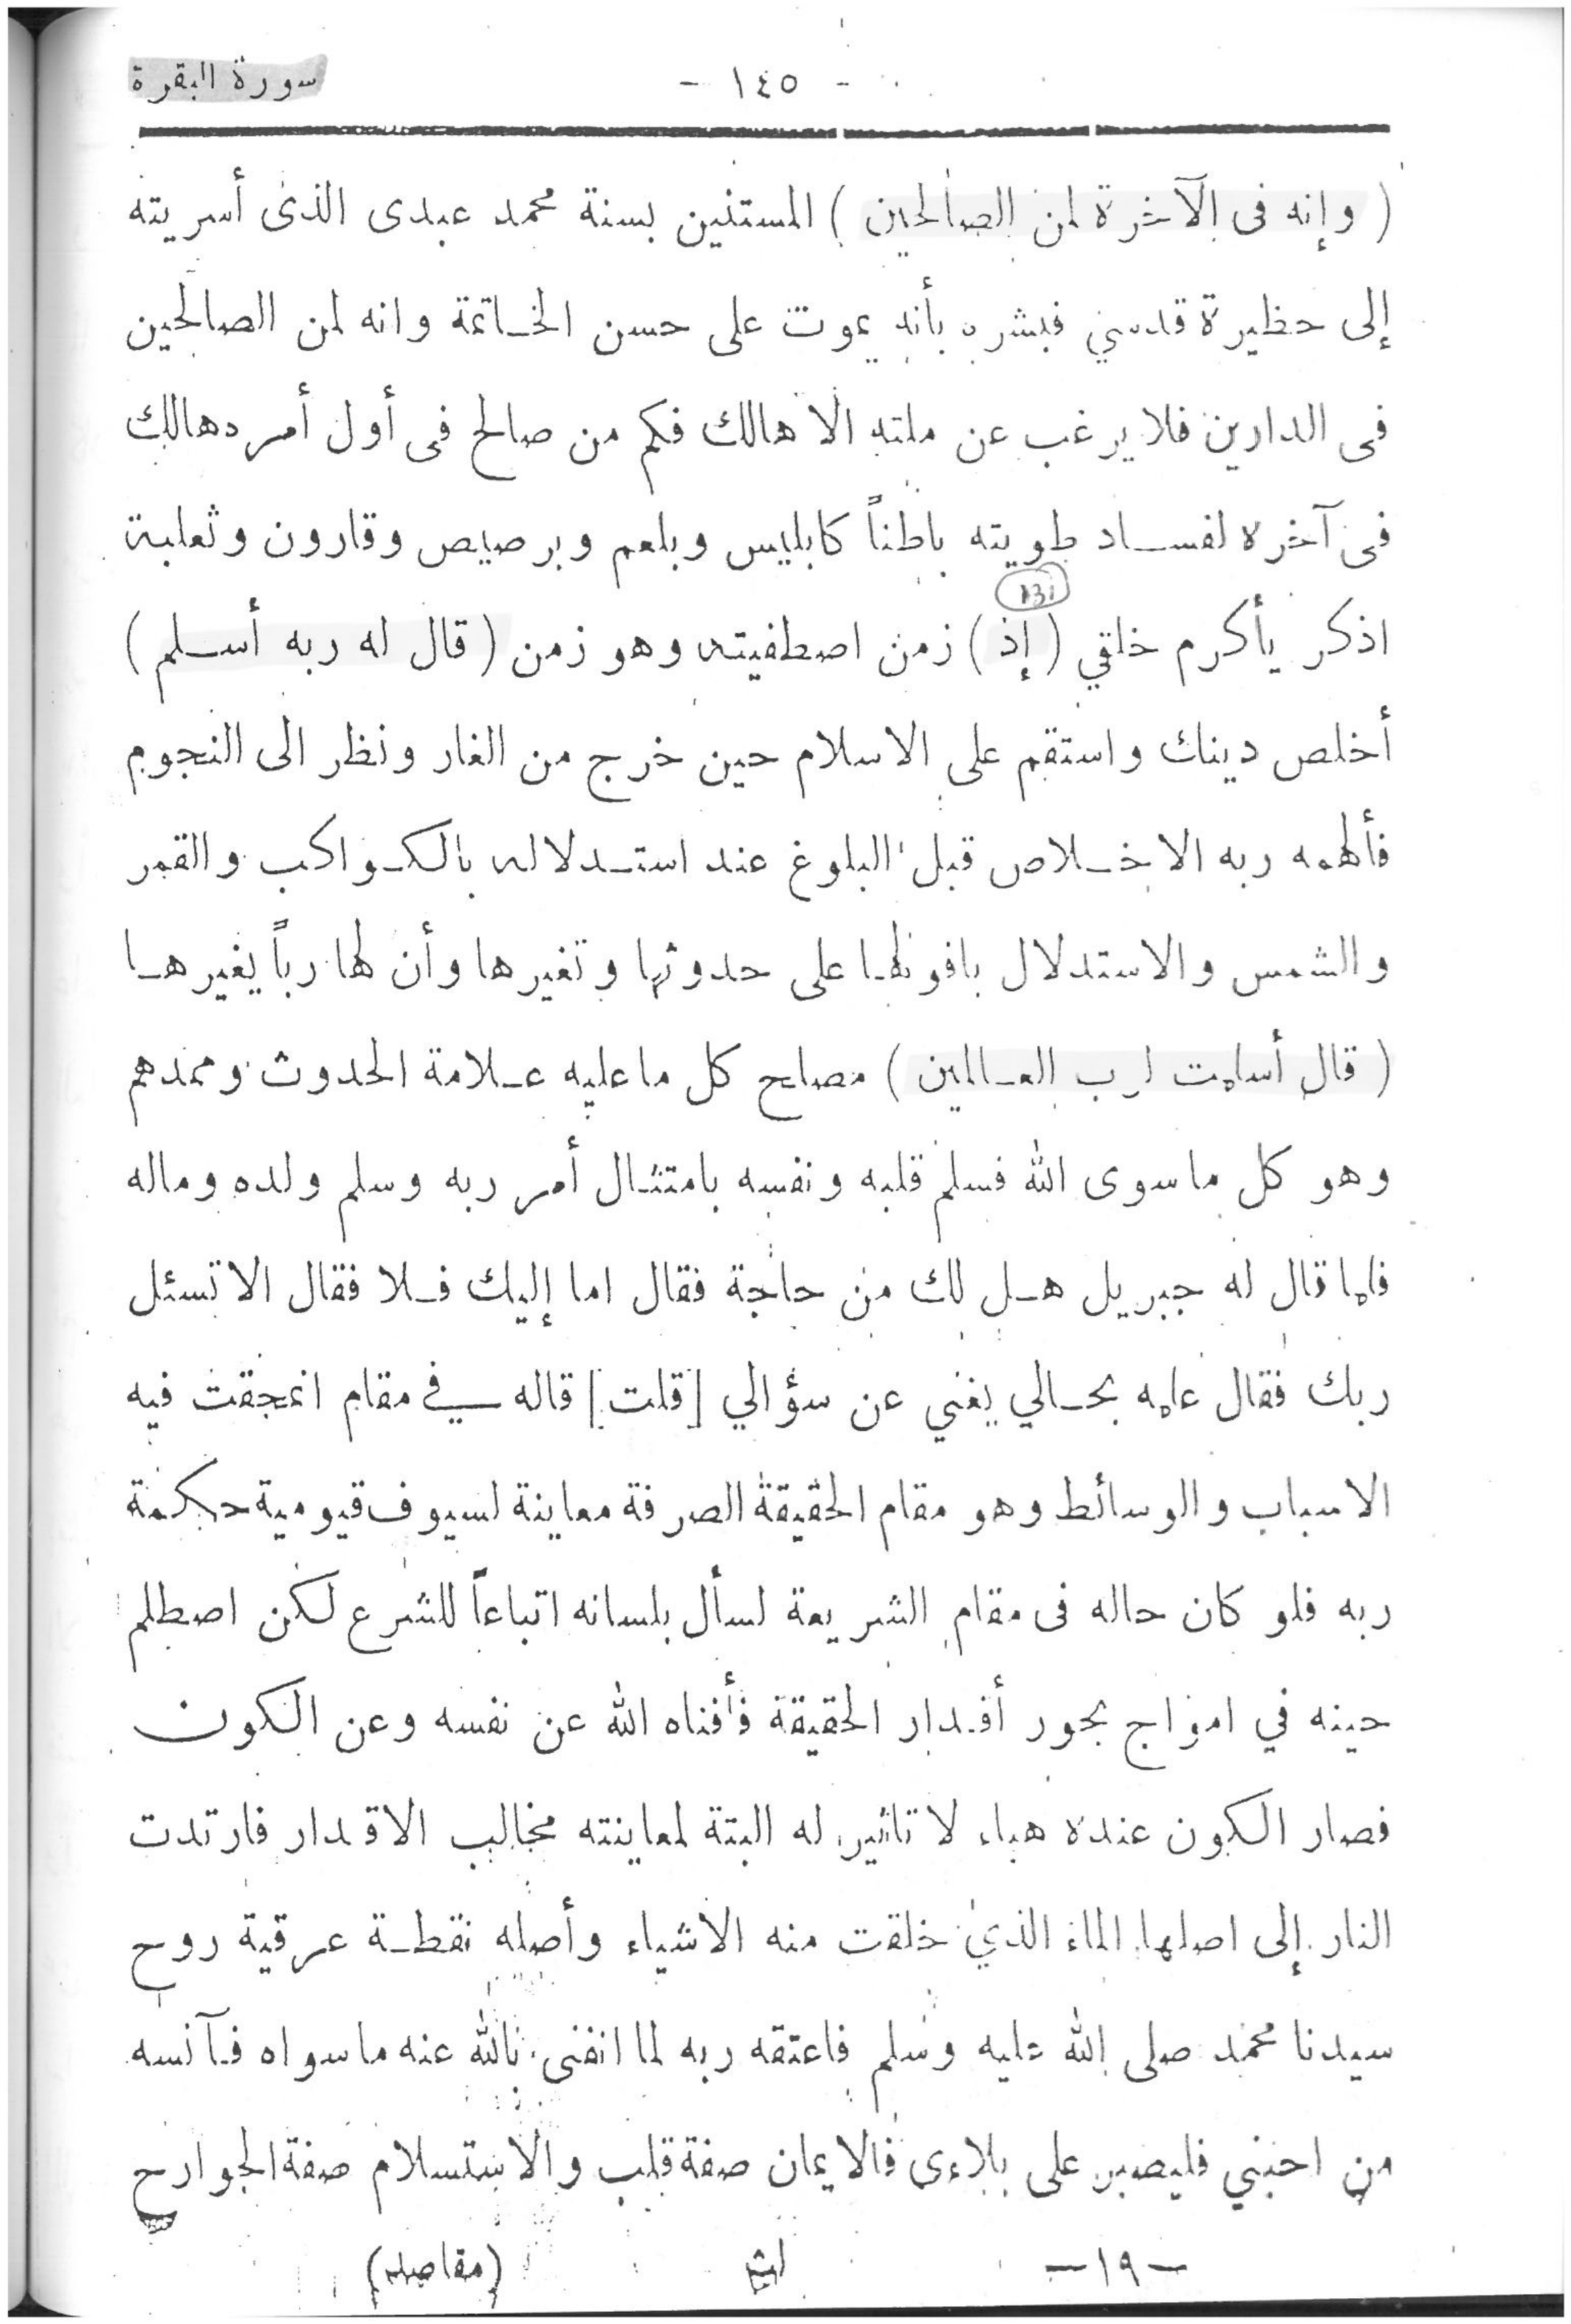 سورة البقرة - ١٤٥ -
( وإنه فى الآخرة لمن الصالحين ) المستنين بسنة محمد عبدى الذى أسريته
إلى حظيرة قدسي فبشره بأنه يموت على حسن الخاتمة وانه لمن الصالحين
فى الدارين فلا يرغب عن ملته الا هالك فكم من صالح فى أول أمره هالك
فى آخره لفساد طويته باطناً كابليس وبلعم وبرصيص وقارون وثعلبة
131
اذكر يأكرم خلقي ( إذ ) زمن اصطفيته وهو زمن ( قال له ربه أسلم )
أخلص دينك واستقم على الاسلام حين خرج من الغار ونظر الى النجوم
فألهمه ربه الاخلاص قبل البلوغ عند استدلاله بالكواكب والقمر
والشمس والاستدلال بافولها على حدوثها وتغيرها وأن لها رباً يغيرها
( قال أسلمت لرب العالمين ) مصلح كل ما عليه علامة الحدوث وممدهم
وهو كل ما سوى الله فسلم قلبه ونفسه بامتثال أمر ربه وسلم ولده وماله
فلما قال له جبريل هل لك من حاجة فقال اما إليك فلا فقال الا تسئل
ربك فقال علمه بحالي يغني عن سؤالي [قلت] قاله في مقام انمحقت فيه
الاسباب والوسائط وهو مقام الحقيقة الصرفة معاينة لسيوف قيومية حكمة
ربه فلو كان حاله فى مقام الشريعة لسأل بلسانه اتباعاً للشرع لكن اصطلم
حينه في امواج بحور أقدار الحقيقة فأفناه الله عن نفسه وعن الكون
فصار الكون عنده هباء لا تاثير له البتة لمعاينته مخالب الاقدار فارتدت
النار إلى اصلها الماء الذي خلقت منه الاشياء وأصله نقطة عرقية روح
سيدنا محمد صلى الله عليه وسلم فاعتقه ربه لما انفنى بالله عنه ما سواه فآنسه
من احبني فليصبر على بلاءى فالايمان صفة قلب والاستسلام صفة الجوارح
- ١٩ - لث (مقاصد)